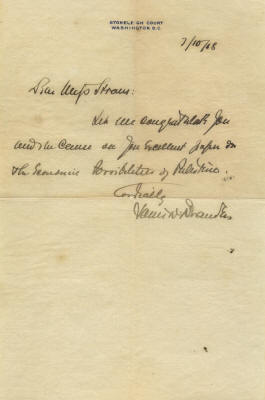 STONELEIGH COURT
WASHINGTON D.C.
7/10/18
Dear Miss Straus:
Let me congratulate you
and the cause on your excellent paper on
the Economic Possibilities of Palestine.
Cordially
Louis D. Brandeis